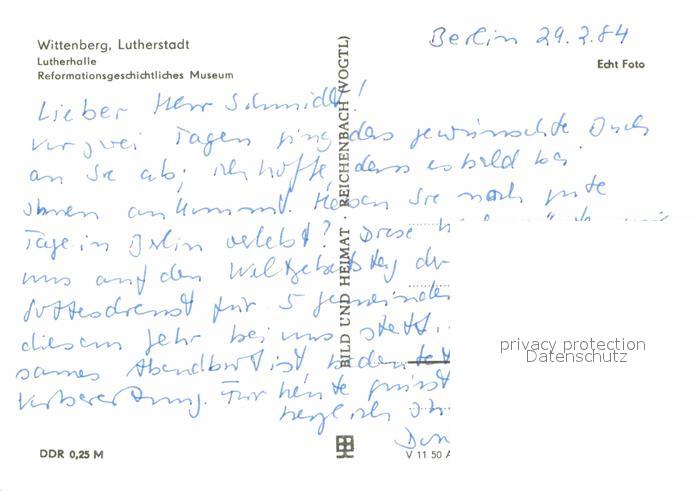 Wittenberg, Lutherstadt
Lutherhalle
Reformationsgeschichtliches Museum
Berlin 29.2.84
Echt Foto
Lieber Herr Schmidt!
vor zwei Tagen ging das gewünschte Buch
an Sie ab; ich hoffe, dass es bald bei
Ihnen ankommt. Haben Sie noch gute
Tage in Berlin verlebt? Diese
uns auf den Weltgebetstag
Gottesdienst für 5 Gemeinden
diesem Jahr bei uns statt.
sames Abendbrot ist
Vorbereitung. Für heute grüsst
herzlich
BILD UND HEIMAT · REICHENBACH (VOGTL)
DDR 0,25 M
V 11 50 A
privacy protection
Datenschutz